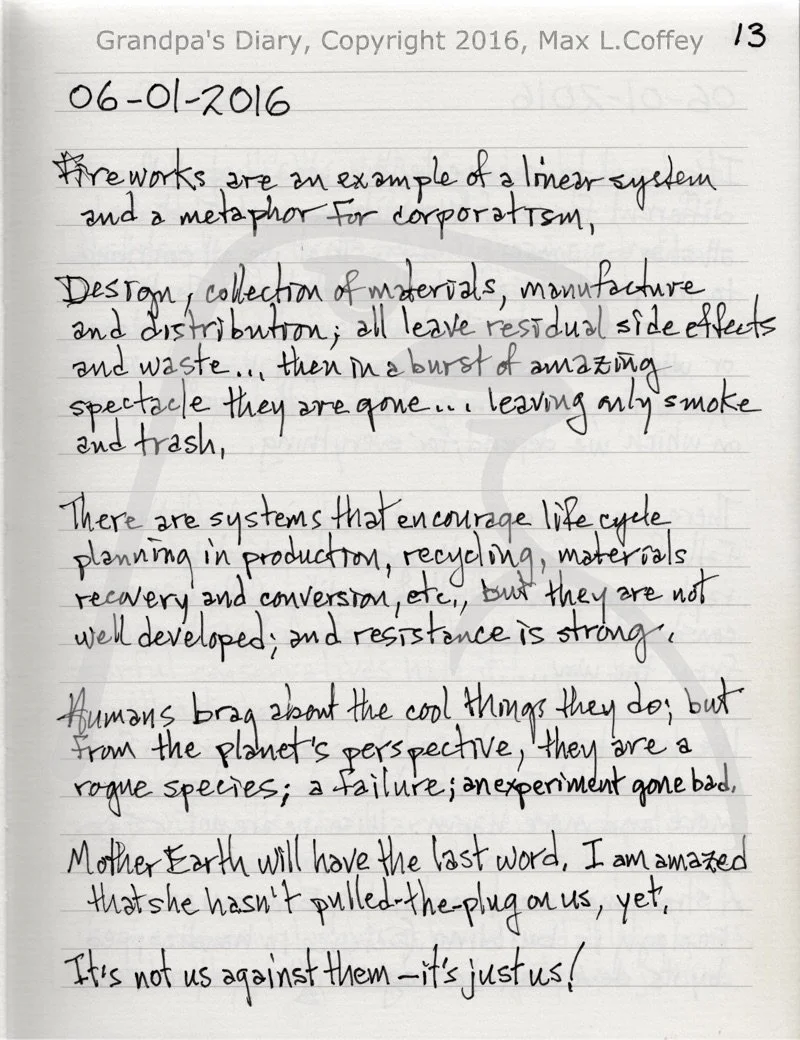 Grandpa's Diary, Copyright 2016, Max L.Coffey 13
06-01-2016
Fireworks are an example of a linear system
and a metaphor for corporatism.
Design, collection of materials, manufacture
and distribution; all leave residual side effects
and waste... then in a burst of amazing
spectacle they are gone... leaving only smoke
and trash.
There are systems that encourage life cycle
planning in production, recycling, materials
recovery and conversion, etc., but they are not
well developed; and resistance is strong.
Humans brag about the cool things they do; but
from the planet's perspective, they are a
rogue species; a failure; an experiment gone bad.
Mother Earth will have the last word. I am amazed
that she hasn't pulled-the-plug on us, yet.
It's not us against them—it's just us!